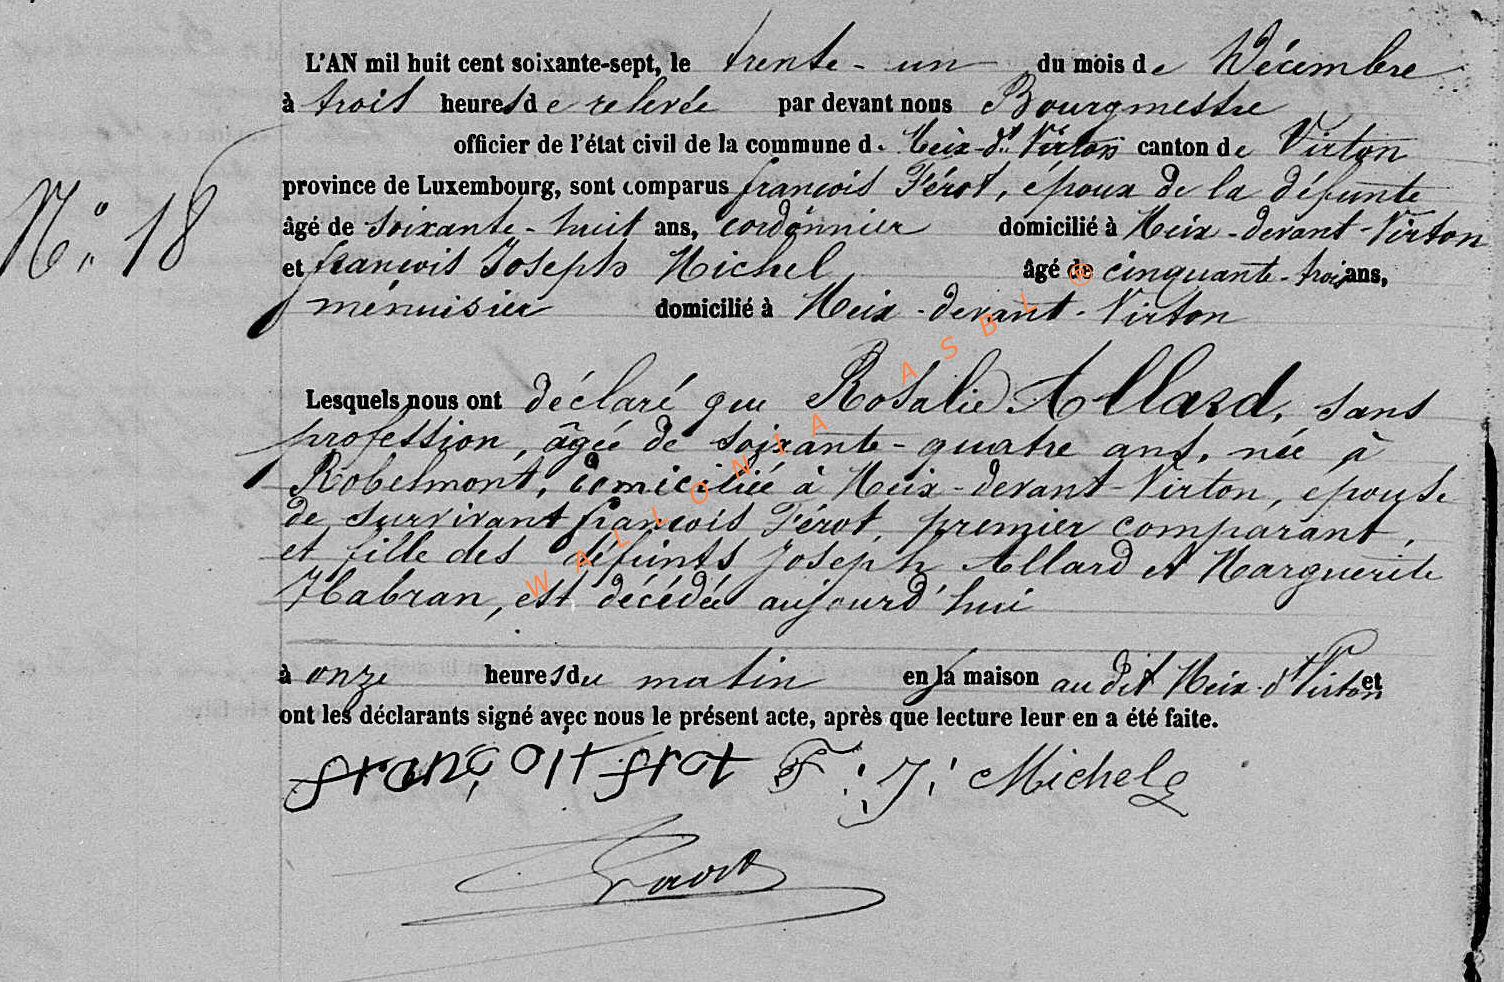 L'AN mil huit cent soixante-sept, le trente-un du mois de Décembre
à trois heures de relevée par devant nous Bourgmestre
officier de l'état civil de la commune de Meix-dt Virton canton de Virton
province de Luxembourg, sont comparus françois Férot, époux de la défunte
âgé de soixante-huit ans, cordonnier domicilié à Meix-devant-Virton
Nº 18
et françois Joseph Michel âgé de cinquante-trois ans,
ménuisier domicilié à Meix-devant-Virton
Lesquels nous ont déclaré que Rosalie Allard, sans
profession, âgée de soixante-quatre ans, née à
Robelmont, domiciliée à Meix-devant-Virton, épouse
de survivant françois Férot, premier comparant,
et fille des défunts Joseph Allard et Marguerite
Habran, est décédée aujourd'hui
à onze heures du matin en la maison au dit Meix-dt Virton et
ont les déclarants signé avec nous le présent acte, après que lecture leur en a été faite.
françoit frot F: J: Michel
WALLONIA ASBL ®